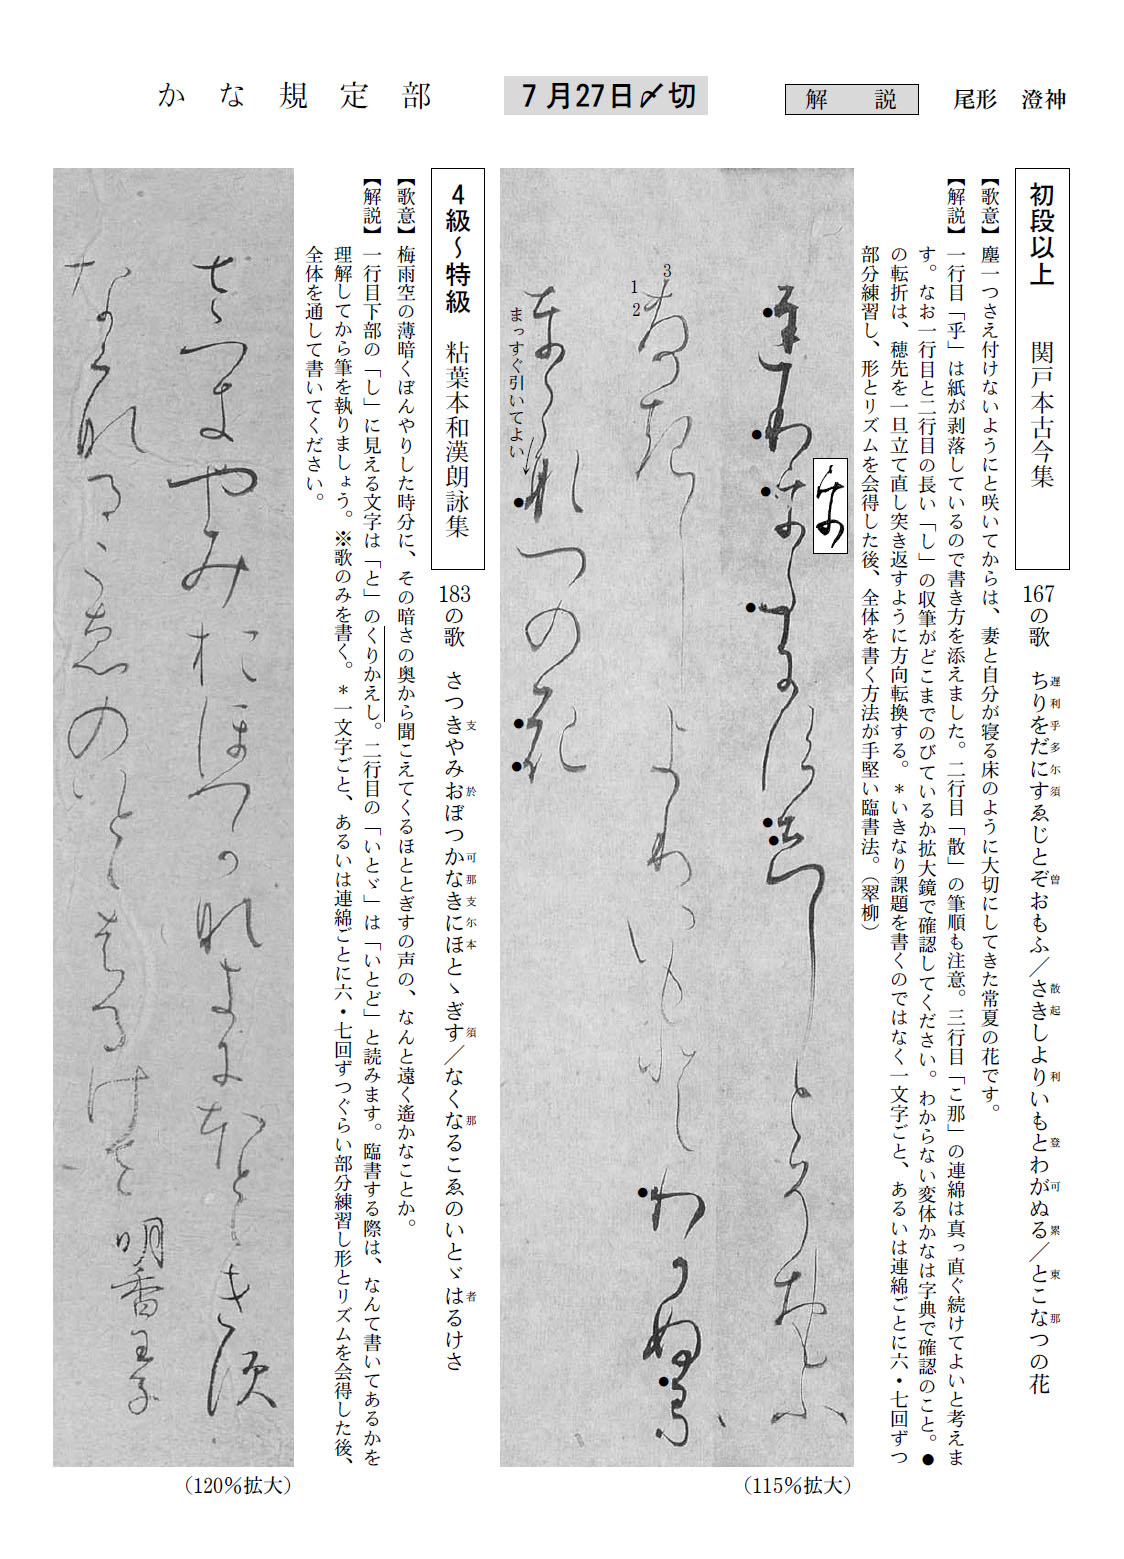 かな規定部
7月27日〆切
解説
尾形 澄神
初段以上 関戸本古今集
167の歌 ちりをだにすゑじとぞおもふ／さきしよりいもとわがぬる／とこなつの花
遅利乎多尓須 曽 散起 利 登可累 東那
【歌意】塵一つさえ付けないようにと咲いてからは、妻と自分が寝る床のように大切にしてきた常夏の花です。
【解説】一行目「乎」は紙が剥落しているので書き方を添えました。二行目「散」の筆順も注意。三行目「こ那」の連綿は真っ直ぐ続けてよいと考えま
す。なお一行目と二行目の長い「し」の収筆がどこまでのびているか拡大鏡で確認してください。わからない変体かなは字典で確認のこと。●
の転折は、穂先を一旦立て直し突き返すように方向転換する。＊いきなり課題を書くのではなく一文字ごと、あるいは連綿ごとに六・七回ずつ
部分練習し、形とリズムを会得した後、全体を書く方法が手堅い臨書法。（翠柳）
3
1
2
まっすぐ引いてよい
（115％拡大）
4級～特級 粘葉本和漢朗詠集
183の歌 さつきやみおぼつかなきにほとゝぎす／なくなるこゑのいとゞはるけさ
支 於 可那支尓本 須 那 者
【歌意】梅雨空の薄暗くぼんやりした時分に、その暗さの奥から聞こえてくるほととぎすの声の、なんと遠く遙かなことか。
【解説】一行目下部の「し」に見える文字は「と」のくりかえし。二行目の「いとゞ」は「いとど」と読みます。臨書する際は、なんて書いてあるかを
理解してから筆を執りましょう。※歌のみを書く。＊一文字ごと、あるいは連綿ごとに六・七回ずつぐらい部分練習し形とリズムを会得した後、
全体を通して書いてください。
明香王子
（120％拡大）